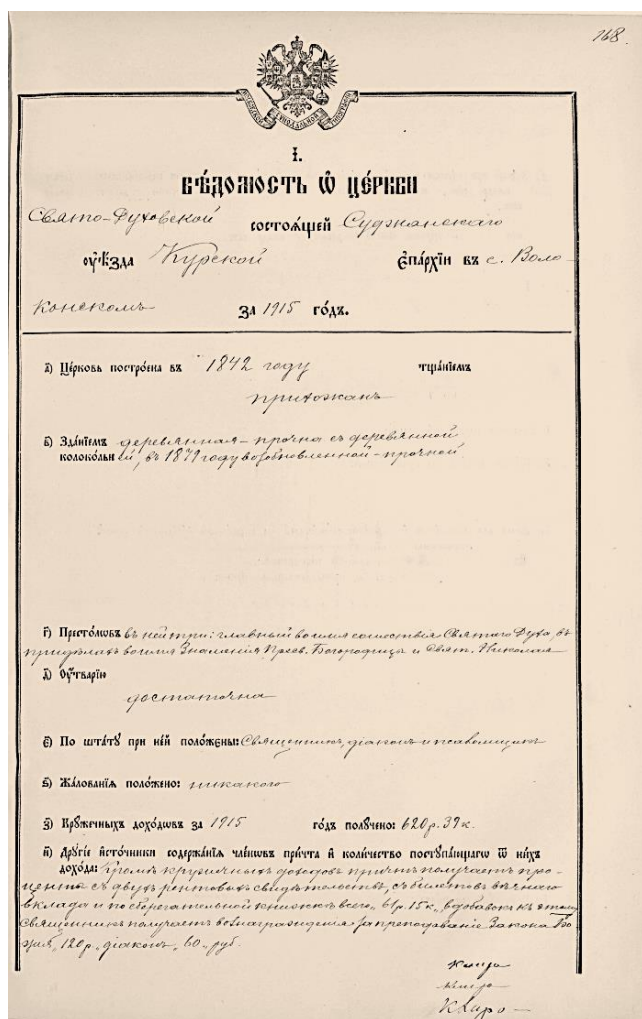 168.
МОСКОВСКОЙ СѴНОДАЛЬНОЙ ТИПОГРАФІИ
І.
ВѢДОМОСТЬ Ѿ ЦЕ́РКВИ
Свято-Духовской состоѧ́щей Суджанскаго
оу҆ѣ́зда Курской є҆па́рхїи въ с. Воло-
конскомъ за 1915 го́дъ.
а҃) Це́рковь постро́ена въ 1842 году тща́нїемъ
прихожанъ
в҃) Зда́нїемъ деревянная - прочна съ деревянной
колоко́льней, въ 1879 году возобновленной - прочной.
г҃) Престо́лѡвъ въ ней три: главный во имя сошествія Святаго Духа, въ
придѣлахъ во имя Знаменія Пресв. Богородицы и Свят. Николая
д҃) Оу҆́тварїю
достаточна
є҃) По шта́тꙋ при не́й поло́жены: Священникъ, діаконъ и псаломщикъ
ѕ҃) Жа́лованїѧ поло́жено: никакого
з҃) Крꙋ́жечныхъ дохо́дѡвъ за 1915 го́дъ полꙋ́чено: 620 р. 39 к.
и҃) Дрꙋгі́е и҆сто́чники содержа́нїѧ чле́нѡвъ при́чта и҆ коли́чество постꙋпа́ющагѡ ѿ ни́хъ
дохо́да: Кромѣ кружечныхъ доходовъ причтъ получаетъ про-
центы съ двухъ рентовыхъ свидѣтельствъ, съ билетовъ вѣчнаго
вклада и по сберегательной книжкѣ всего „61 р. 15 к., вдобавокъ къ этому
Священникъ получаетъ вознагражденія за преподаваніе Закона Бо-
жія „120 р„ діаконъ „60„ руб.